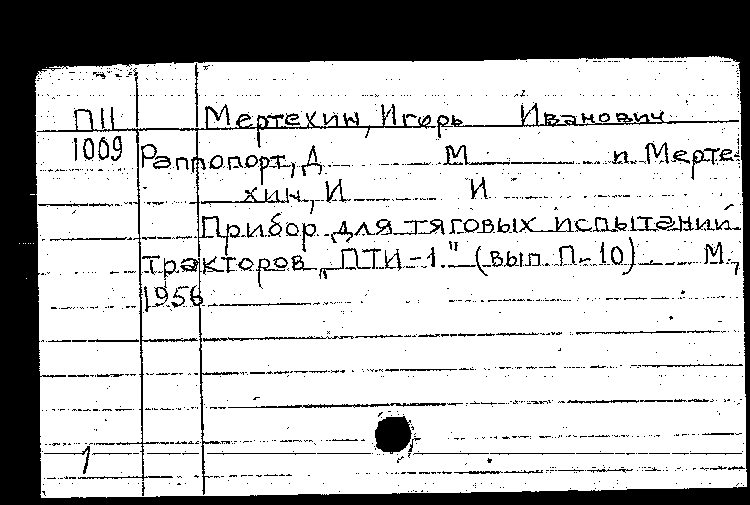 П11 Мертехин, Игорь Иванович
1009 Раппопорт, Д М и Мерте-
хин, И И
Прибор для тяговых испытаний
тракторов „ПТИ-1" (вып. П-10) М.,
1956
1